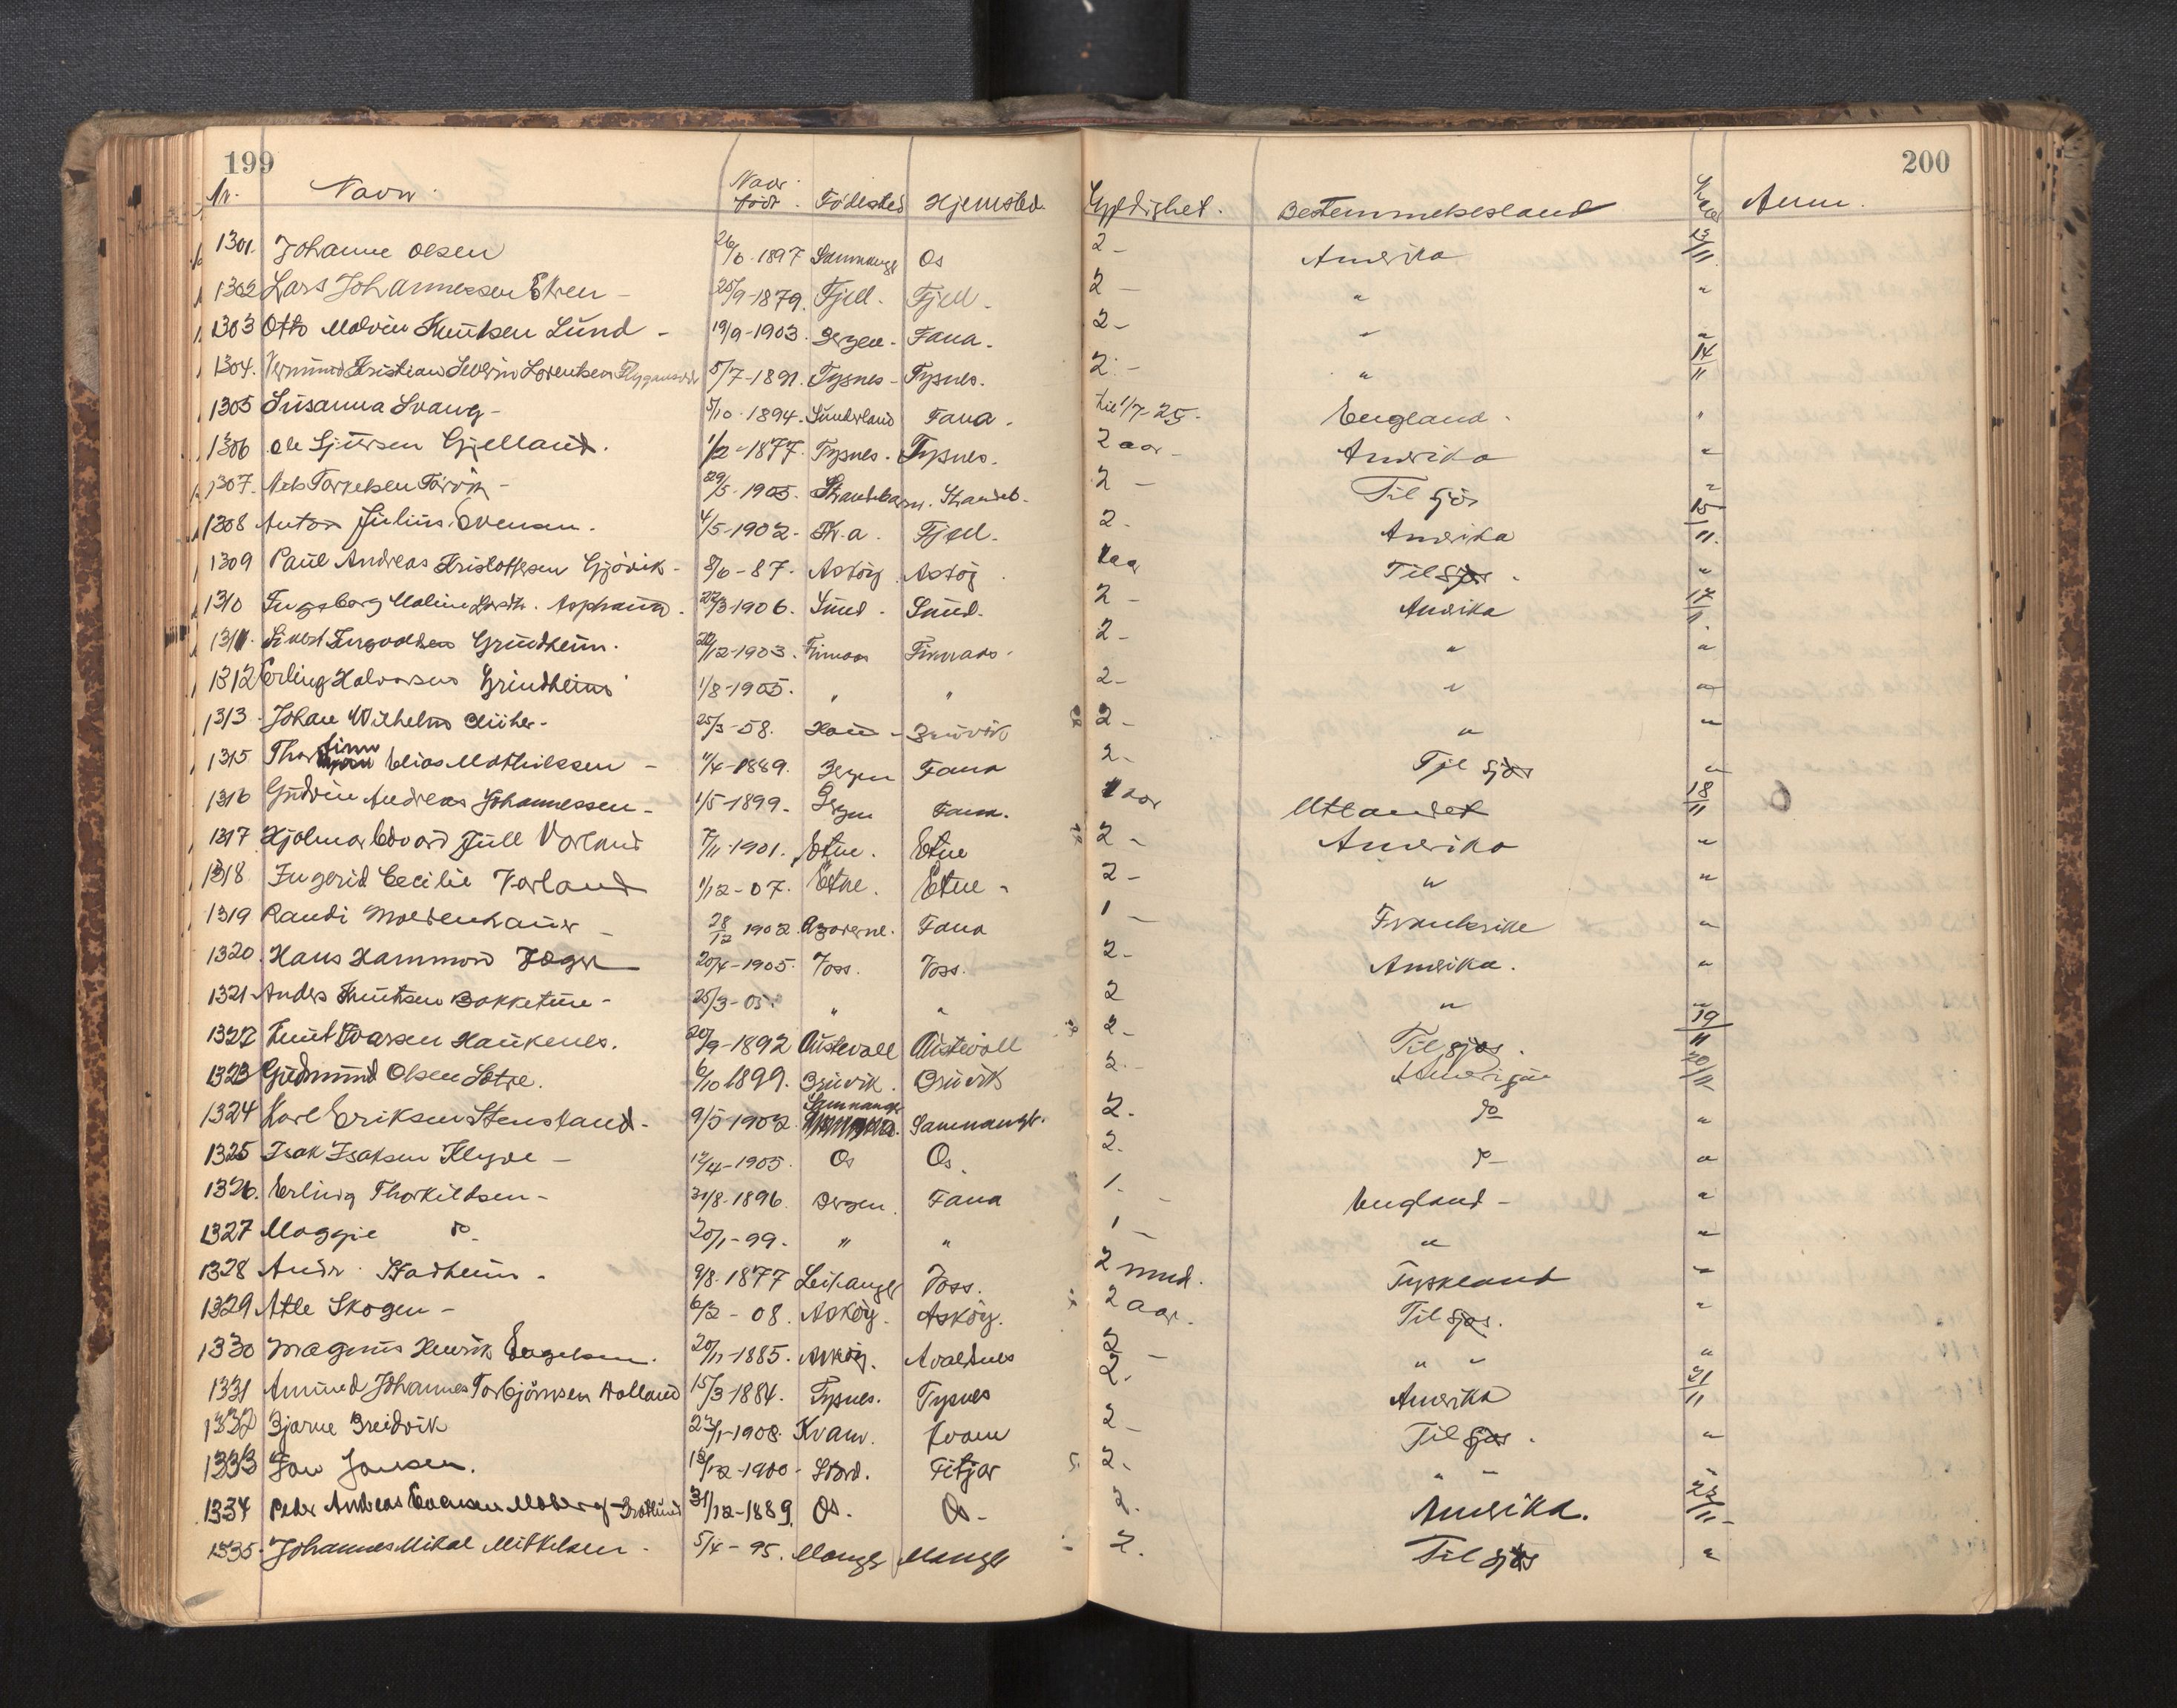 199 200
Nr. Navn. Naar født. Fødested Hjemsted. Gyldighet. Bestemmelsesland Naar Anm.
1301. Johanne Olsen 26/6-1897 Samnanger Os 2- Amerika 13/11
1302 Lars Johannessen Ekren - 25/9-1879. Fjell. Fjell. 2- " "
1303 Otto Malvin Knutsen Lund - 19/9-1903. Bergen - Fana. 2- " "
1304. Kristian Severin Lorentsen 5/7-1891. Tysnes - Tysnes. 2.- " 14/11
1305 Susanna Svang - 5/10-1894. Sunderland Fana. til 1/7-25. England. "
1306 Ole Sjursen Gjelland. 1/2-1877. Tysnes. Tysnes. 2 aar - Amerika "
1307. Nels Torkelsen 29/5-1905. Strandebarm. Strandeb. 2 - Til sjøs "
1308 Anton Julius Evensen. 4/5-1902. Kr.a. Fjell. 2. Amerika 15/11.
1309 Paul Andreas Kristoffersen Gjövik - 8/6-87. Asköy. Asköy. 1 aar Til sjøs. "
1310 Ingeborg Maline 22/3-1906. Sund. Sund. 2 - Amerika 17/11.
1311. Sivert Ingvaldsen Grindheim. 12-1903. Finnaas Finnaas. 2 - " "
1312 Erling Halvorsen Grindheim 1/8-1905. " " 2- " "
1313. Johan Wilhelm 25/3-58. Haus - Bruvik 2- " "
1315 Thorfinn Elias Mathiessen - 11/4-1889. Bergen Fana 2- Til sjøs "
1316 Gudvin Andreas Johannessen - 1/5-1899. Bergen Fana. 1 aar Utlandet 18/11
1317 Hjalmar Edvard Jull Vorland 7/11-1901. Etne. Etne 2- Amerika "
1318 Ingerid Cecilie Vorland 1/12-07. Etne. Etne - 2- " "
1319 Randi Moldenhauer - 28/12 1902. Azorerne. Fana 1 - Frankrike "
1320. Hans Hammond Jæger 20/4-1905. Voss. Voss. 2- Amerika. "
1321 Anders Knutsen Bakketun - 25/3-05. " " 2 " "
1322 Knut Ivarsen Haukenes. 20/9-1892 Austevoll Austevoll 2- Til sjøs. 19/11
1323 Gudmund Olsen Sotre. 6/10 1899. Bruvik. Bruvik 2.- Amerika 20/11
1324 Karl Eriksen Stensland - 9/5-1902. Samnanger Samnanger. 2. do "
1325 Isak Isaksen Klyve - 12/4-1905. Os Os. 2. do "
1326. Erling Thorkildsen - 31/8-1896. Bergen. Fana 1. - England - "
1327 Maggie do. 20/1-99. " " 1 - " "
1328 Andr. Stadheim. 9/8-1877 Leikanger Voss. 2 mnd. Tyskland "
1329 Atle Skogen - 6/2-08. Asköy. Asköy. 2 aar. Til sjøs. "
1330 Magnus Henrik Engelsen. 20/11-1885. Asköy. Avaldsnes 2 - " " "
1331 Amund Johannes Torbjörnsen Dalland 15/3-1884. Tysnes. Tysnes 2. Amerika 21/11
1332 Bjarne Breidvik 23/1-1908. Kvam. Kvam 2- Til sjøs. "
1333 Jan Jansen. 18/12-1900 - Stord. Fitjar 2- " " "
1334 Peder Andreas Moberg 31/12-1889. Os. Os - 2. Amerika. 22/11-
1335. Johannes Mikal Mikkelsen. 5/4-95. Manger Manger 2. Til sjøs "